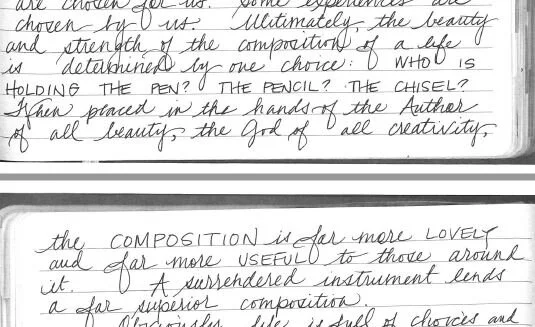 are chosen for us. Some experiences are
chosen by us. Ultimately, the beauty
and strength of the composition of a life
is determined by one choice: WHO IS
HOLDING THE PEN? THE PENCIL? THE CHISEL?
When placed in the hands of the Author
of all beauty, the God of all creativity,
the COMPOSITION is far more LOVELY
and far more USEFUL to those around
it. A surrendered instrument lends
a far superior composition.
Obviously, life is full of choices and